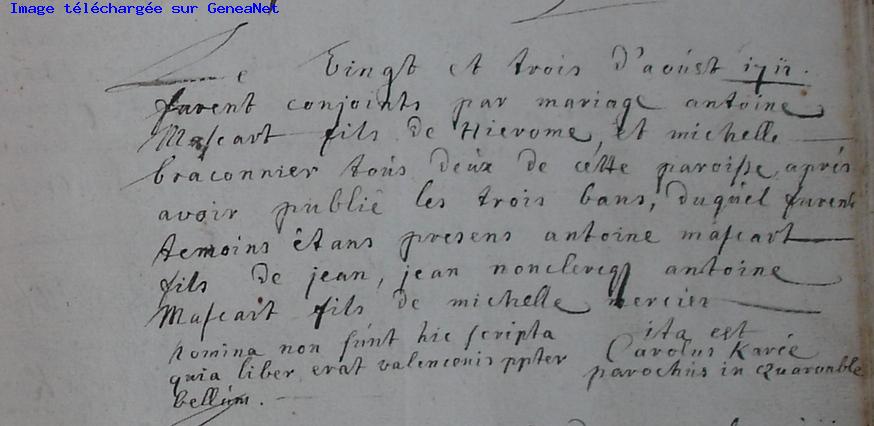 Image téléchargée sur GeneaNet
Le Vingt et trois d'aoúst 1711.
furent conjoints par mariage antoine
Mascart fils de Hierome, et michelle
braconnier toús deúx de cétte paroisse, aprés
avoir publié les trois bans, duquél furent
temoins êtans presens antoine mascart
fils de jean, jean nonclercq antoine
Mascart fils de michelle mercier
Nomina non súnt hic scripta
quia liber erat valencenis ppter
bellúm.
ita est
Carolus Karée
parochús in Quarouble